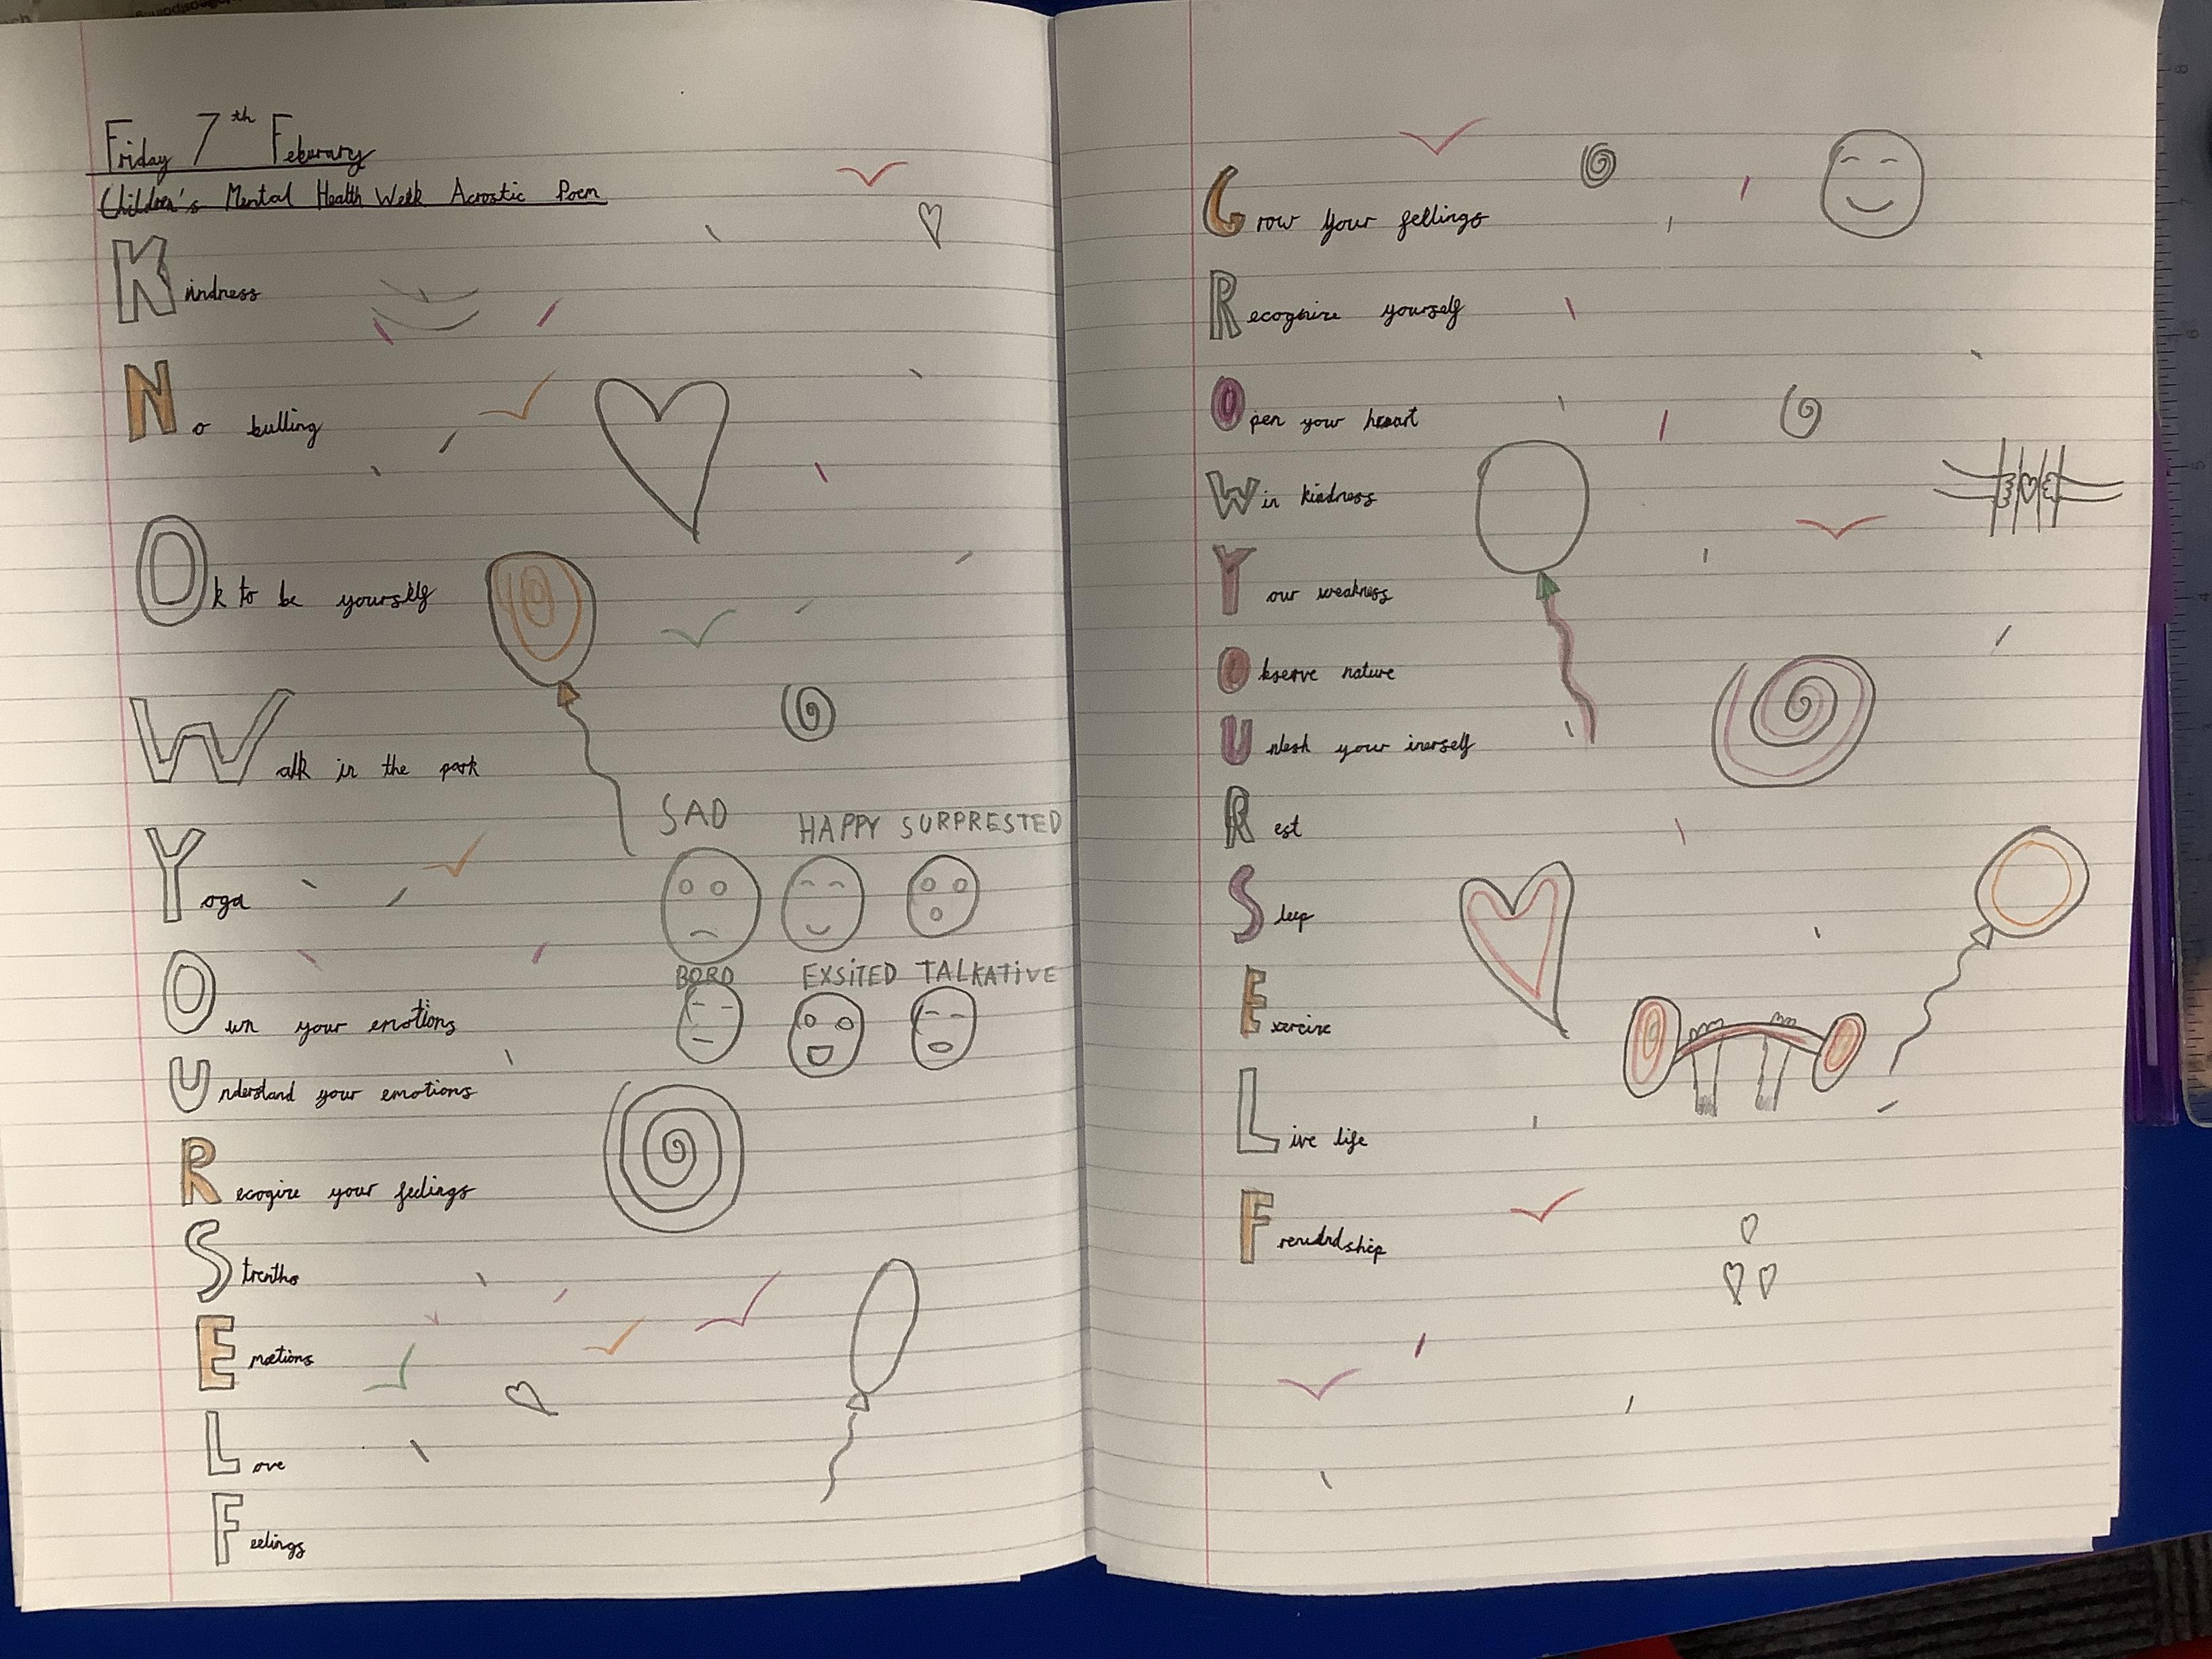 Friday 7th Feburary
Children's Mental Health Week Acrostic Poem
Kindness
No bulling
Ok to be yourself
Walk in the park
Yoga
Own your emotions
Understand your emotions
Recogize your feelings
Strenths
Emotions
Love
Feelings
SAD HAPPY SURPRESTED
BORD EXSiTED TALKATiVE
Grow Your fellings
Recognize yourself
Open your heart
Win kindness
Your weakness
Observe nature
Unlesh your inerself
Rest
Sleep
Exercise
Live life